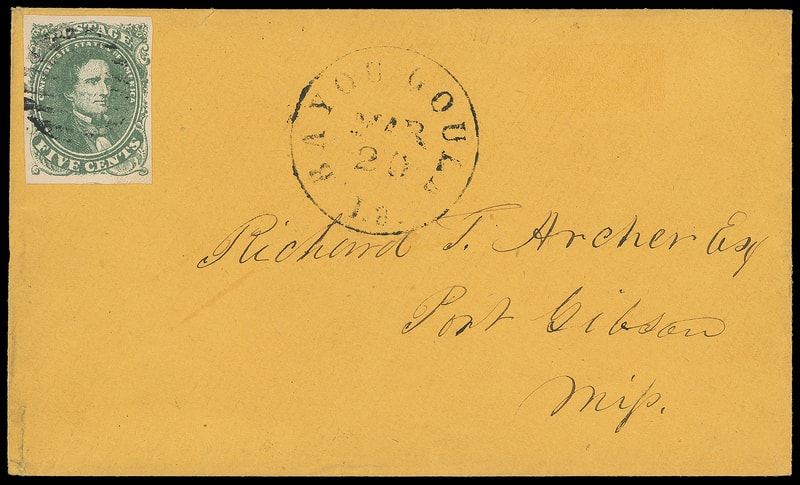 POSTAGE
CONFEDERATE STATES OF AMERICA
FIVE CENTS
BAYOU GOULA
MAR
20
La.
Richard T. Archer Esq
Port Gibson
Miſs.